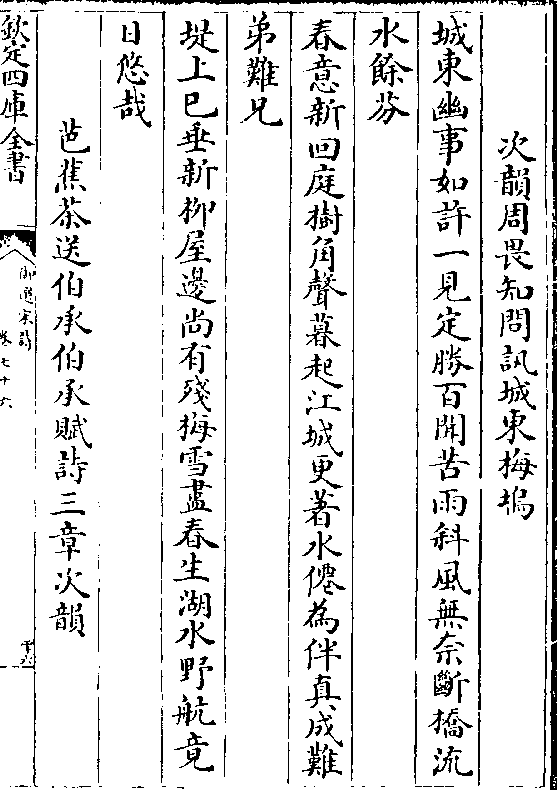 次韻周畏知問訊城東梅塢
城東幽事如許一見定勝百聞苦雨斜風無奈斷橋流
水餘芬
春意新回庭樹角聲暮起江城更著水僊為伴真成難
弟難兄
堤上已垂新柳屋邊尚有殘梅雪盡春生湖水野航竟
日悠哉
芭蕉茶送伯承伯承賦詩三章次韻
欽定四庫全書
御選宋詩
卷七十六